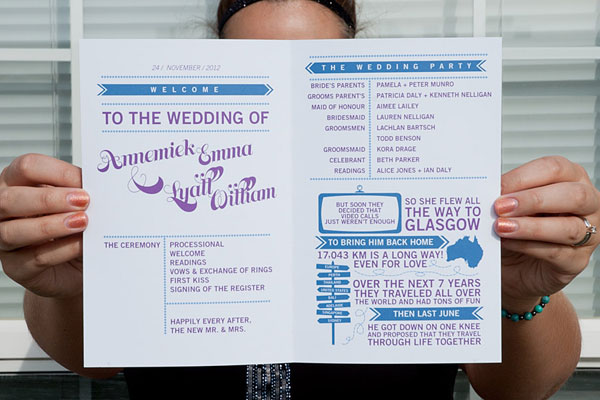 24 / NOVEMBER / 2012
WELCOME
TO THE WEDDING OF
Annemiek Emma
& Lyall William
THE CEREMONY
PROCESSIONAL
WELCOME
READINGS
VOWS & EXCHANGE OF RINGS
FIRST KISS
SIGNING OF THE REGISTER
HAPPILY EVERY AFTER,
THE NEW MR. & MRS.
THE WEDDING PARTY
BRIDE'S PARENTS PAMELA + PETER MUNRO
GROOMS PARENT'S PATRICIA DALY + KENNETH NELLIGAN
MAID OF HONOUR AIMEE LAILEY
BRIDESMAID LAUREN NELLIGAN
GROOMSMEN LACHLAN BARTSCH
TODD BENSON
GROOMSMAID KORA DRAGE
CELEBRANT BETH PARKER
READINGS ALICE JONES + IAN DALY
BUT SOON THEY
DECIDED THAT
VIDEO CALLS
JUST WEREN'T ENOUGH
SO SHE FLEW ALL
THE WAY TO
GLASGOW
TO BRING HIM BACK HOME
17,043 KM IS A LONG WAY!
EVEN FOR LOVE
EUROPE
PERTH
THAILAND
UNITED STATES
BALI
ADELAIDE
SINGAPORE
SYDNEY
OVER THE NEXT 7 YEARS
THEY TRAVELED ALL OVER
THE WORLD AND HAD TONS OF FUN
THEN LAST JUNE
HE GOT DOWN ON ONE KNEE
AND PROPOSED THAT THEY TRAVEL
THROUGH LIFE TOGETHER